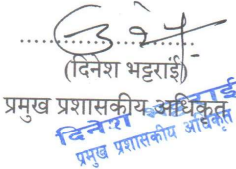 (दिनेश भट्टराई)
प्रमुख प्रशासकीय अधिकृत
दिनेश भट्टराई
प्रमुख प्रशासकीय अधिकृत